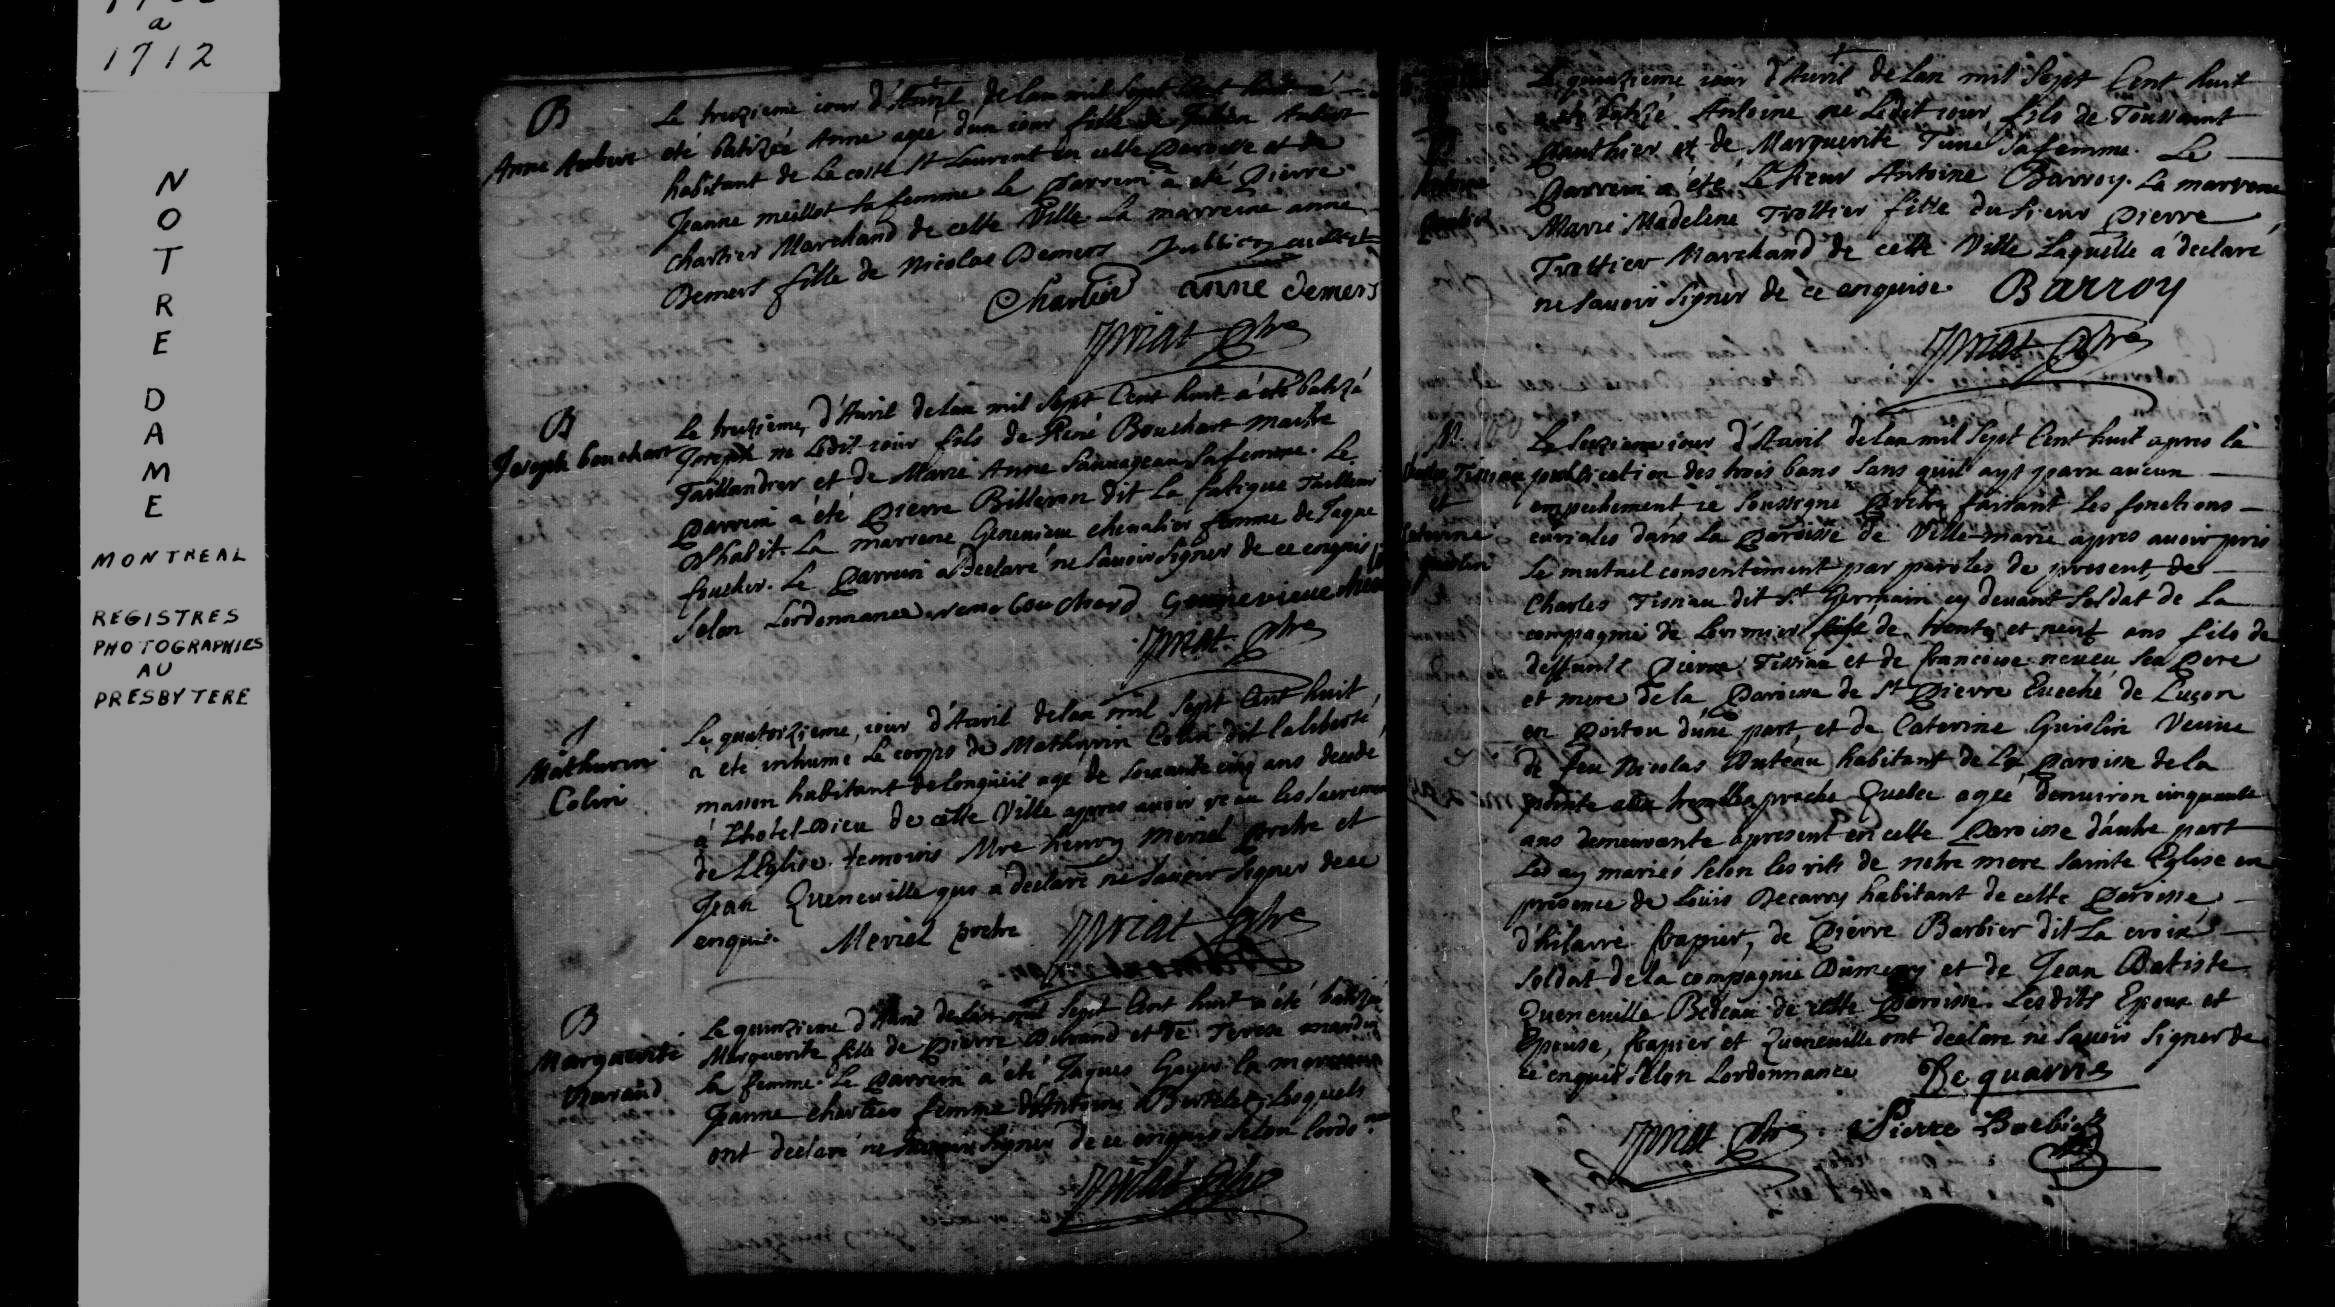 a
1712
N
O
T
R
E
D
A
M
E
MONTREAL
REGISTRES
PHOTOGRAPHIES
AU
PRESBYTERE
B
Anne Aubert
Le treizieme iour d'Avril de lan mil sept cent huit á
eté batizée Anne agée d'un iour fille de Julien Aubert
habitant de la coste St Laurent en cette Paroisse et de
Jeanne meillot sa femme le Parrein a eté Pierre
Chartier Marchand de cette Ville La marreine anne
Demers fille de Nicolas Demers
Chartier anne demers
Priat ptre
B
Joseph bouchart
Le treizieme d'Avril de lan mil sept cent huit a eté batizé
Joseph ne ledit iour fils de René Bouchart maitre
Taillandier et de Marie Anne Sauvageau sa femme. Le
Parrein a été Pierre Billeron dit La fatigue Tailleur
d'habit. La marrene Genevieve chevalier femme de Jaque
foucher. Le Parrein a declaré ne savoir signer de ce enquis
selon lordonnance rene bouchard Geneviève
Priat ptre
S
Mathurin
Colin
Le quatorzieme iour d'Avril de lan mil sept cent huit
a été inhumé Le corps de Mathurin Colin dit laliberté
masson habitant de longueüil agé de soixante cinq ans decedé
á Lhótel-Dieu de cette Ville apres avoir receu les sacremens
de LEglise. temoins Mre henry Meriel Pretre et
Jean Queneville qui a declaré ne savoir signer de ce
enquis. Meriel pretre Priat ptre
B
Marguerite
Durand
Le quinzieme d'Avril de lan mil sept cent huit a été batizée
Marguerite fille de Pierre Durand et de Terese
sa femme. Le Parrein a été Jaques Goyer la marreine
Jeanne chartier femme d'Antoine Burtelet Lesquels
ont declaré ne savoir signer de ce enquis selon lordonnance
Priat ptre
B
Antoine
Le quinzieme iour d'Avril de Lan mil sept Cent huit
a eté batizé Antoine ne Ledit iour, fils de Toussaint
Gauthier et de Marguerite Tuné sa femme. Le
Parrein a été Le sieur Antoine Barroy. La marrene
Marie Madelene Trottier fille du sieur Pierre
Trottier Marchand de cette Ville Laquelle a declaré
ne savoir signer de ce enquise. Barroy
Priat ptre
M.
Tissiau
et
Caterine
Guislin
Le seizieme iour d'Avril de lan mil sept Cent huit apres la
publication des trois bans sans quil ayt paru aucun
empechement ie soussigné Pretre faisant les fonctions
curiales dans la Paroisse de Ville-marie apres avoir pris
le mutuel consentement par paroles de present de
Charles Tissiau dit St Germain cy devant soldat de La
compagnie de Lorimier agé de trente et neuf ans fils de
deffunts Pierre Tissiau et de francoise neveu ses Pere
et mere de la Paroisse de St Pierre Eveché de Luçon
en Poitou d'une part, et de Caterine Guislin Veuve
de feu Nicolas Buteau habitant de la Paroisse de la
pointe aux trembles proche Quebec agée denviron cinquante
ans demeurante apresent en cette Paroisse d'autre part
Les ay mariés selon les rits de notre mere sainte Eglise en
presence de Loüis Decarry habitant de cette Paroisse
d'hilaire frapier, de Pierre Barbier dit La croix
soldat de la compagnie Dumeny et de Jean Batiste
Queneville Bedeau de cette Paroisse. Lesdits Epoux et
Epouse, frapier et Queneville ont declaré ne savoir signer de
ce enquis selon Lordonnance Dequarris
Priat ptre Pierre Barbier